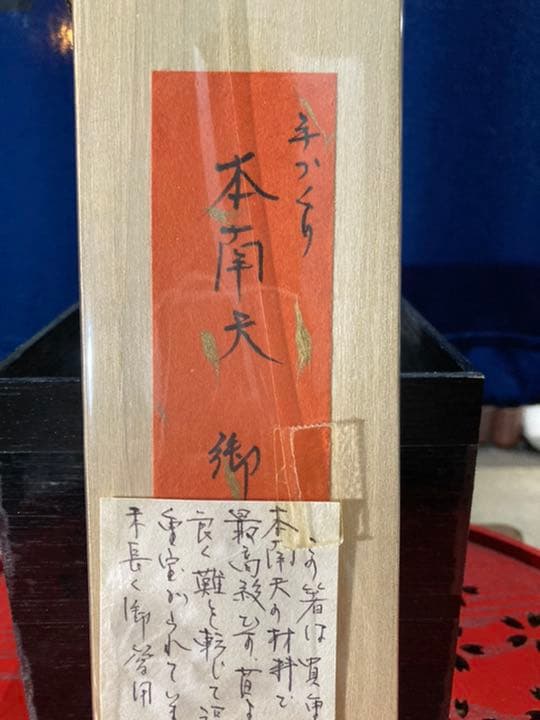 手づくり
本南天
御
この箸は貴重
本南天の材料で
最高級ひす、昔よ
良く難を転じて
重宝がられていま
末長く御
用